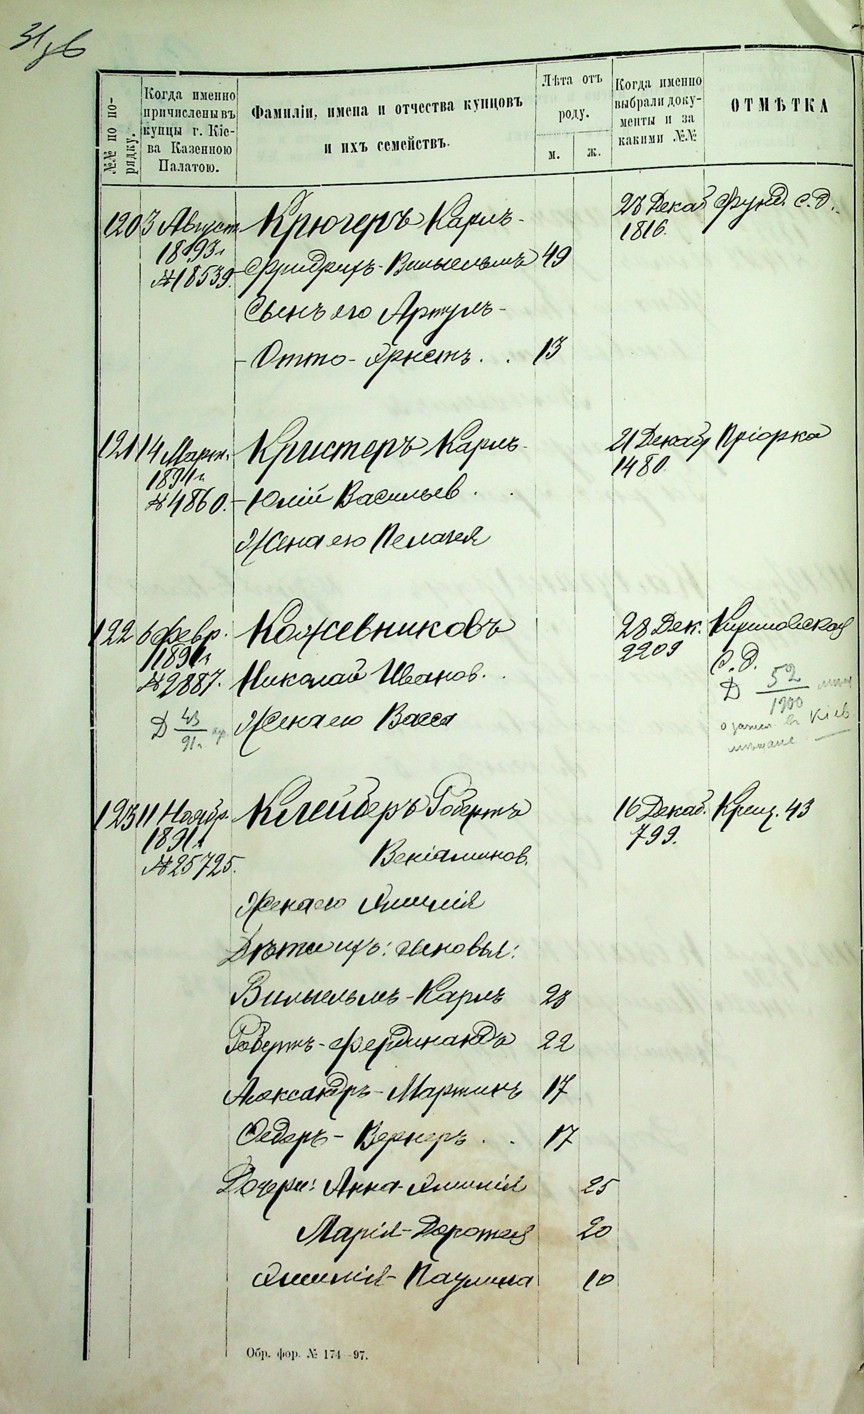 №№ по порядку.
Когда именно причислены въ купцы г. Кіева Казенною Палатою.
Фамиліи, имена и отчества купцовъ и ихъ семействъ.
Лѣта отъ роду.
м.
ж.
Когда именно выбрали документы и за какими №№
ОТМѢТКА
120 3 Август. Крюгеръ Карлъ- 23 Декаб. Фунд. с. д.
1893 г. 1816.
№18539. Фридрихъ-Вильгельмъ 49
Сынъ его Артуръ-
-Отто-Эрнстъ. . 13
121 14 Март. Кристеръ Карлъ- 21 Декабр Пріорка
1891 г. 1480
№4860. -Юлій Васильев. .
Жена его Пелагея
122 6 Февр. Кожевниковъ 28 Дек. Кириловская
1891 г. 2209 с. д.
№2887. Николай Иванов. . Д 52
1900
Д 43 Жена его Васса Кіев
91 г. мѣщане
123 11 Ноябр. Клейберъ Робертъ 16 Декаб. Крещ. 43
1891 г. 799.
№25725. Веніаминов.
Жена его Эмилія
Дѣти ихъ: сыновья:
Вильгельмъ-Карлъ 28
Робертъ-Фердинандъ 22
Александръ-Мартинъ 17
-Вернеръ . . 17
Дочери: Анна-Эмилія 25
Марія-Доротея 20
Эмилія-Паулина 10
Обр. фор. № 174—97.